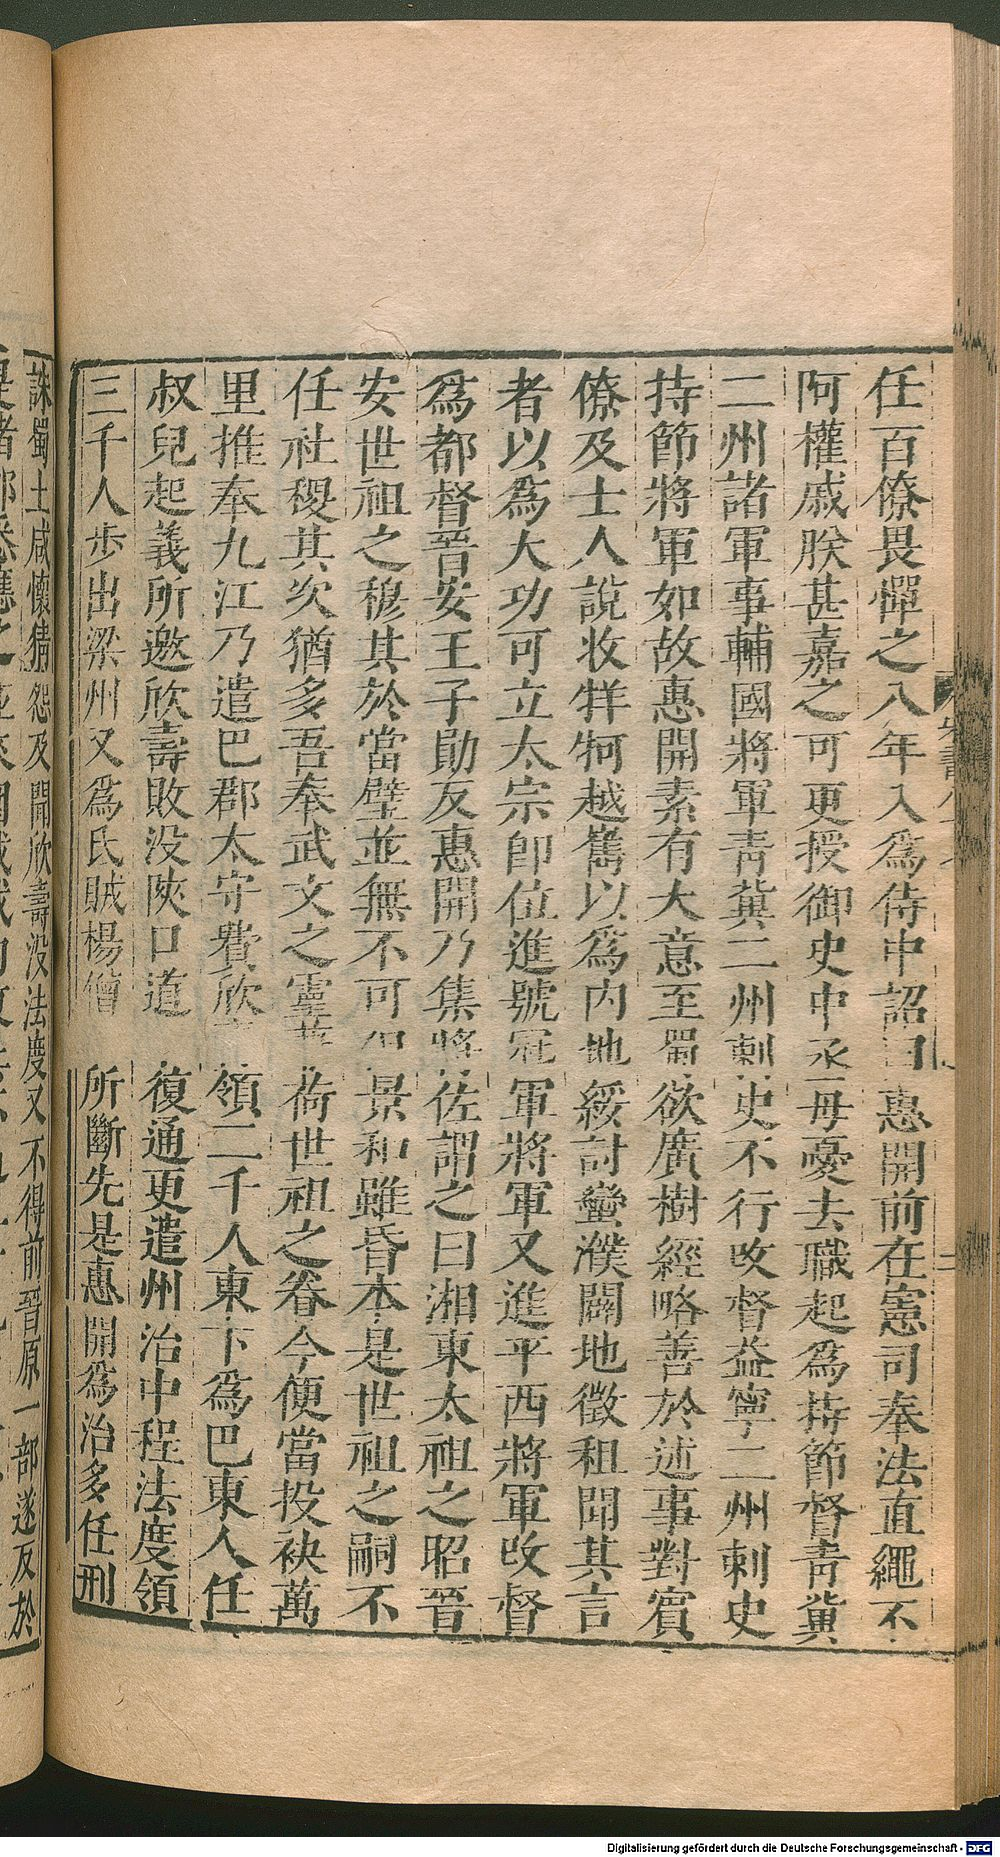 任百僚畏憚之八年入爲侍中詔曰惠開前在憲司奉法直繩不
阿權戚朕甚嘉之可更授御史中丞母憂去職起爲持節督靑冀
二州諸軍事輔國將軍靑冀二州刺史不行改督益寧二州刺史
持節將軍如故惠開素有大意至蜀欲廣樹經略善於述事對賓
僚及士人說收牂牁越巂以爲内地綏討蠻濮闢地徵租聞其言
者以爲大功可立太宗即位進號冠軍將軍又進平西將軍改督
爲都督晉安王子勛反惠開乃集將佐謂之曰湘東太祖之昭晉
安世祖之穆其於當璧並無不可但景和雖昏本是世祖之嗣不
任社稷其次猶多吾奉武文之靈兼荷世祖之眷今便當投袂萬
里推奉九江乃遣巴郡太守費欣壽領二千人東下爲巴東人任
叔兒起義所邀欣壽敗没陝口道復通更遣州治中程法度領
三千人步出梁州又爲氐賊楊僧所斷先是惠開爲治多任刑
誅蜀土咸懷猜怨及聞欣壽没法度又不得前晉原一部遂反於
Digitalisierung gefördert durch die Deutsche Forschungsgemeinschaft - DFG